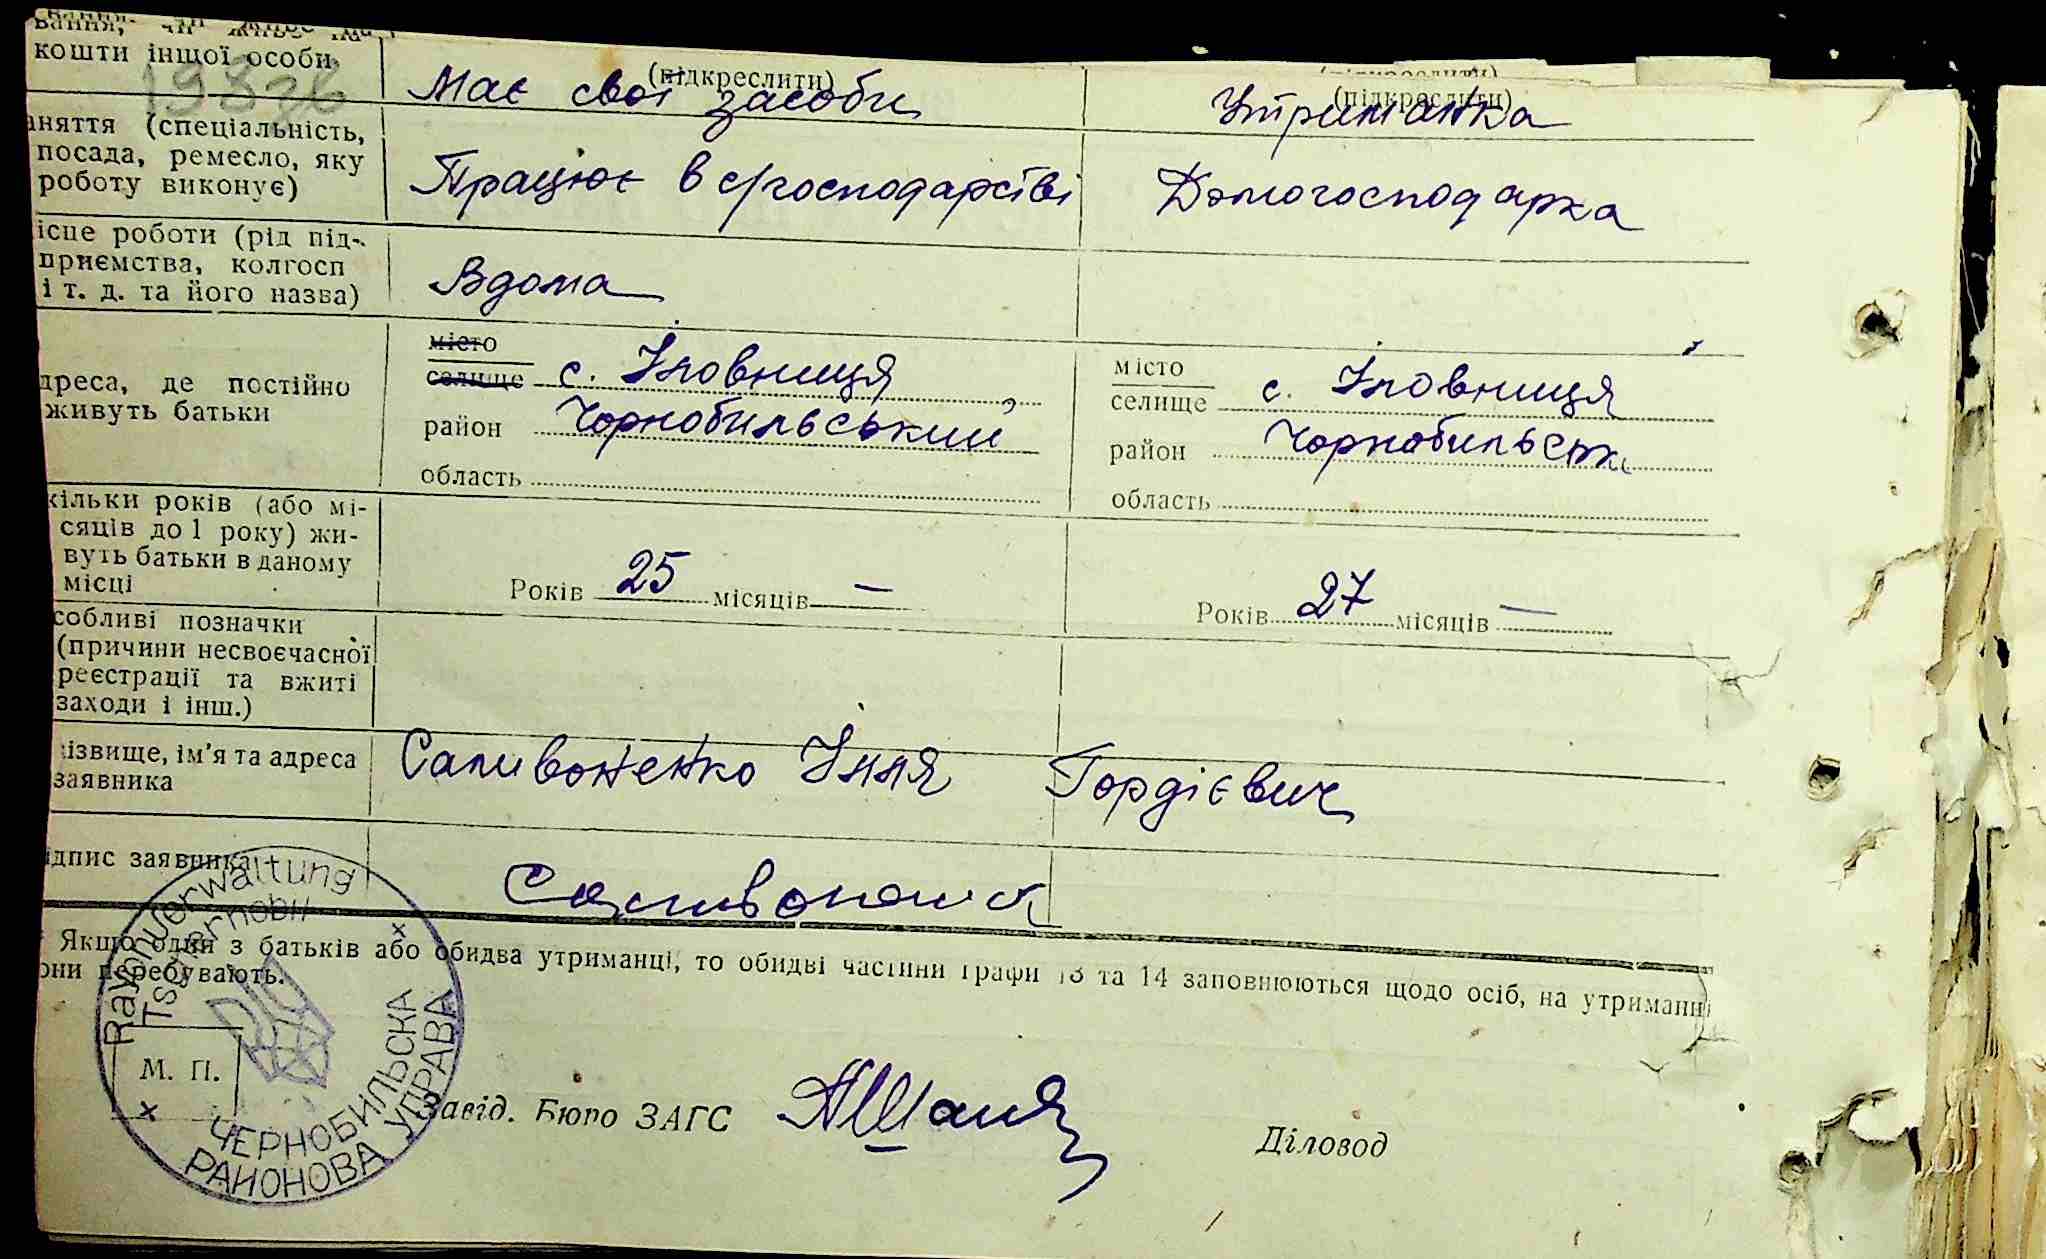 вання, чи живе на
кошти іншої особи
(підкреслити)
(підкреслити)
Має свої засоби
Утриманка
аняття (спеціальність,
посада, ремесло, яку
роботу виконує)
Працює в с/господарстві
Домогосподарка
ісце роботи (рід під-
приємства, колгосп
і т. д. та його назва)
Вдома
дреса, де постійно
живуть батьки
місто
селище с. Іловниця
район Чорнобильський
область
місто
селище с. Іловниця
район Чорнобильськ
область
кільки років (або мі-
сяців до 1 року) жи-
вуть батьки в даному
місці
Років 25 місяців —
Років 27 місяців —
собливі позначки
(причини несвоєчасної
реєстрації та вжиті
заходи і інш.)
ізвище, ім'я та адреса
заявника
Саливоненко Ілля Гордієвич
ідпис заявника
Якщо один з батьків або обидва утриманці, то обидві частини графи 13 та 14 заповнюються щодо осіб, на утриманні
они перебувають.
Rayonverwaltung
Tschernobil
ЧЕРНОБИЛЬСКА
РАЙОНОВА УПРАВА
М. П.
Завід. Бюро ЗАГС
Діловод